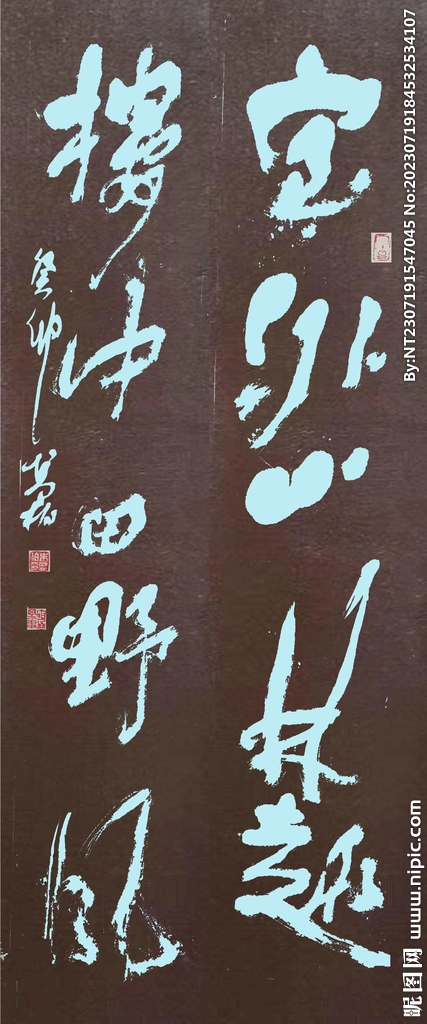 室外山林趣
楼中田野风
癸卯
By:NT2307191547045 No:20230719184532534107
昵图网 www.nipic.com